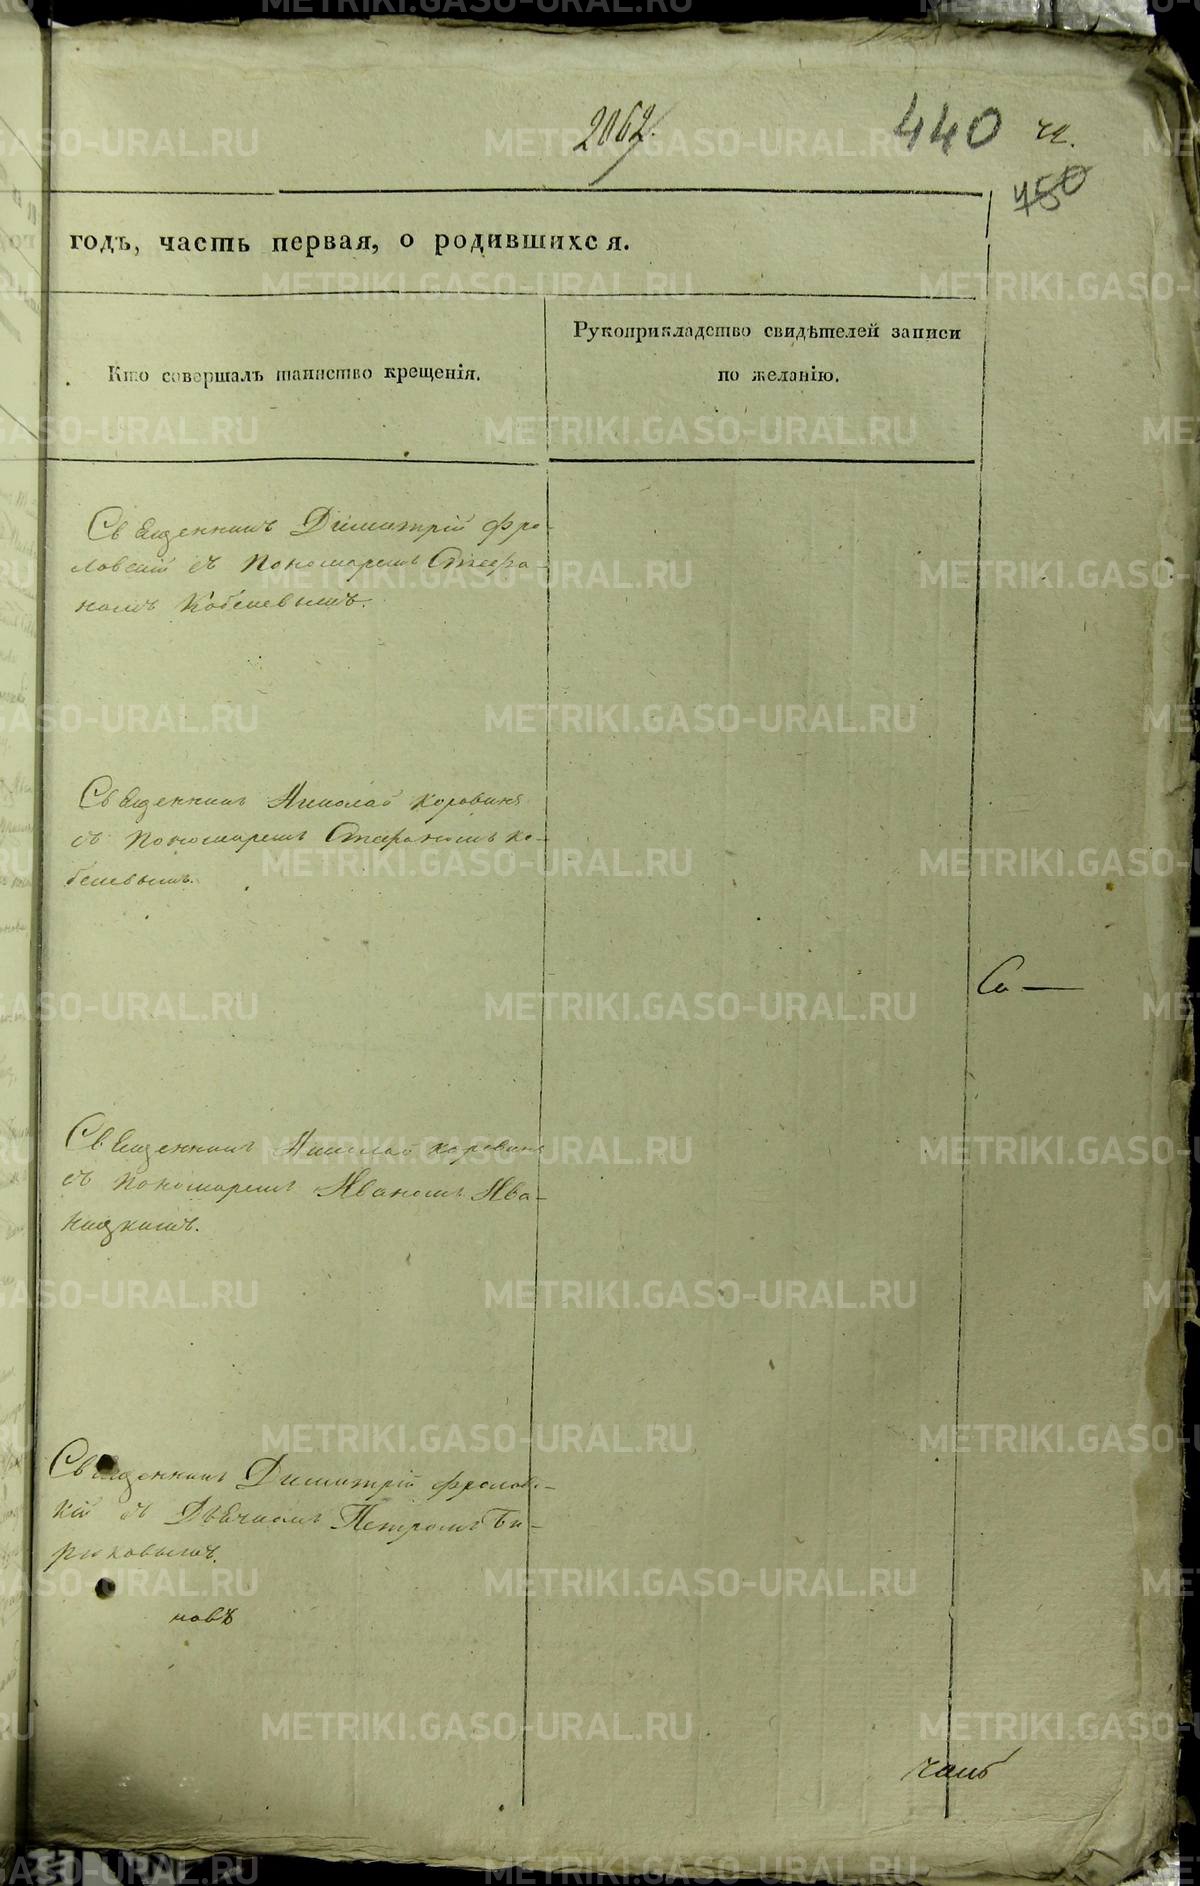 2062.
440
750
годъ, часть первая, о родившихся.
Кто совершалъ таинство крещенія.
Рукоприкладство свидѣтелей записи
по желанію.
Священникъ Димитрій Фро-
ловскій съ пономаремъ Стефа-
номъ Кобелевымъ.
Священникъ Николай Коровинъ
съ пономаремъ Стефаномъ Ко-
белевымъ.
Священникъ Николай Коровинъ
съ пономаремъ Иваномъ Ива-
ницкимъ.
Священникъ Димитрій Фроловс-
кій съ Дьячкомъ Петромъ Би-
рюковымъ.
новъ
METRIKI.GASO-URAL.RU